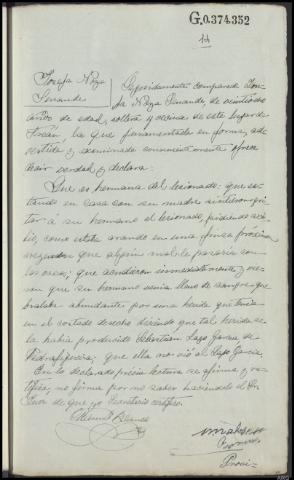 G.0.374.352
11
Josefa Noya
Senande
Seguidamente comparece Jose-
fa Noya Senande, de veintidos
años de edad, soltera y vecina de este lugar de
la que juramentada en forma, ad-
vertida y examinada convenientemente ofrece
decir verdad y declara:
Que es hermana del lesionado: que es-
tando en casa con su madre sintieron gri-
tar á su hermano el lesionado, pidiendo au-
xilio, como estaba arando en una finca próxima
que algún mal le pasaria con
las vacas; que acudieron inmediatamente y vie-
ron que su hermano venia lleno de sangre que
brotaba abundantes por una herida que tenia
en el costado derecho diciendo que tal herida se
la habia producido Sebastian Lago Garcia de
que ella no vió al Lago Garcia.
En lo declarado prévia lectura se afirma y ra-
tifica, no firma por no saber haciendolo el Sr
Juez de que yo Secretario certifico.
Manuel Blanco
Provi-